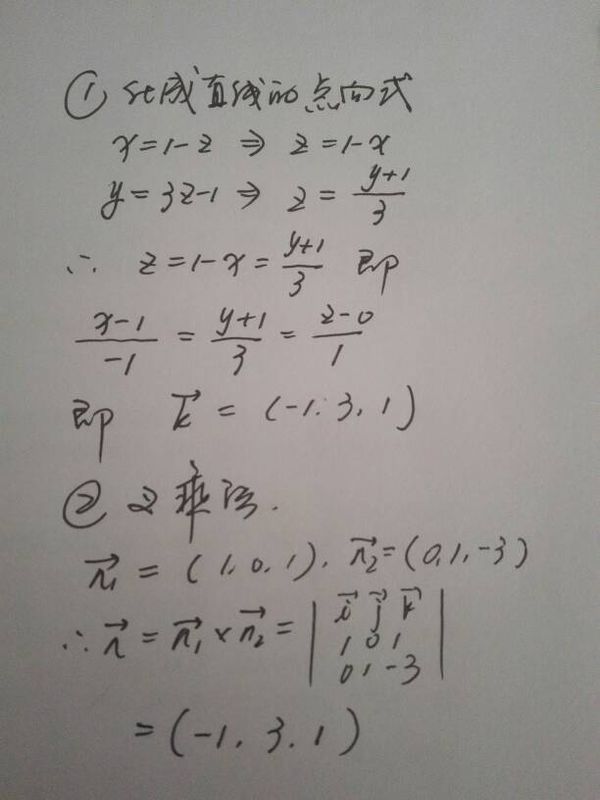 ① 化成直线的点向式
x=1-z ⇒ z=1-x
y=3z-1 ⇒ z=\frac{y+1}{3}
∴ z=1-x=\frac{y+1}{3} 即
\frac{x-1}{-1} = \frac{y+1}{3} = \frac{z-0}{1}
即 \vec{k} = (-1,3,1)
② 叉乘法.
\vec{n_1} = (1,0,1), \vec{n_2}=(0,1,-3)
∴ \vec{n} = \vec{n_1}×\vec{n_2} = | \vec{i} \vec{j} \vec{k}
1 0 1
0 1 -3 |
= (-1, 3, 1)